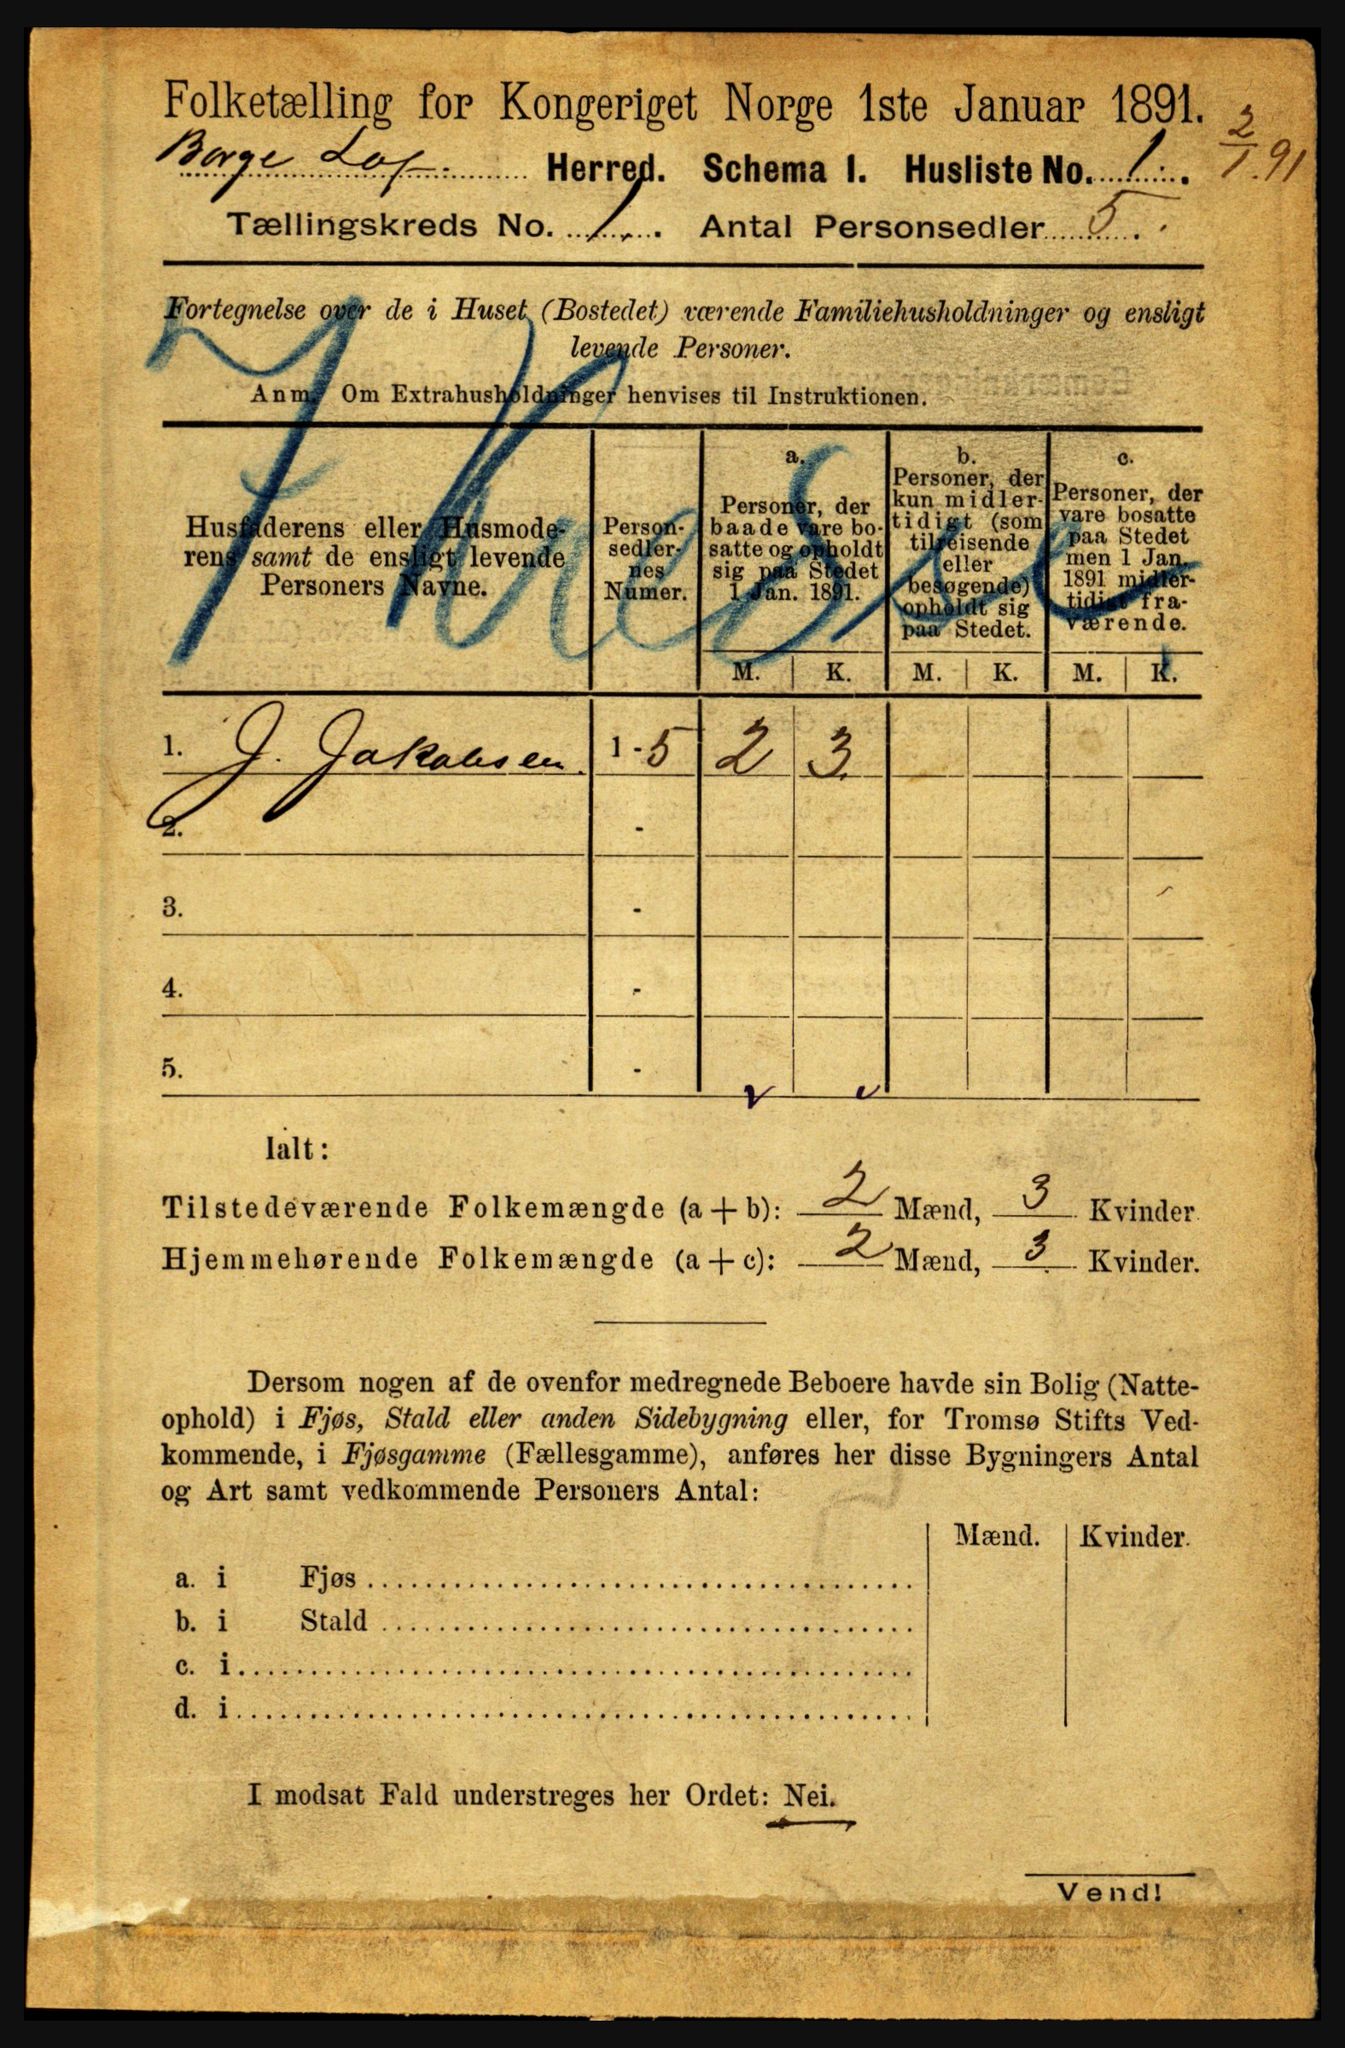 Folketælling for Kongeriget Norge 1ste Januar 1891.
2/1 91
Borge Lof. Herred. Schema I. Husliste No. 1.
Tællingskreds No. 1. Antal Personsedler 5.
Fortegnelse over de i Huset (Bostedet) værende Familiehusholdninger og ensligt
levende Personer.
Anm. Om Extrahusholdninger henvises til Instruktionen.
Husfaderens eller Husmode-
rens samt de ensligt levende
Personers Navne.
Person-
sedler-
nes
Numer.
a.
Personer, der
baade vare bo-
satte og opholdt
sig paa Stedet
1 Jan. 1891.
b.
Personer, der
kun midler-
tidigt (som
tilreisende
eller
besøgende)
opholdt sig
paa Stedet.
c.
Personer, der
vare bosatte
paa Stedet
men 1 Jan.
1891 midler-
tidigt fra-
værende.
M. K. M. K. M. K.
1. J. Jakobsen. 1 - 5 2 3.
2. -
3. -
4. -
5. -
Ialt:
Tilstedeværende Folkemængde (a + b): 2 Mænd, 3 Kvinder.
Hjemmehørende Folkemængde (a + c): 2 Mænd, 3. Kvinder.
Dersom nogen af de ovenfor medregnede Beboere havde sin Bolig (Natte-
ophold) i Fjøs, Stald eller anden Sidebygning eller, for Tromsø Stifts Ved-
kommende, i Fjøsgamme (Fællesgamme), anføres her disse Bygningers Antal
og Art samt vedkommende Personers Antal:
Mænd. Kvinder.
a. i Fjøs
b. i Stald
c. i
d. i
I modsat Fald understreges her Ordet: Nei.
Vend!